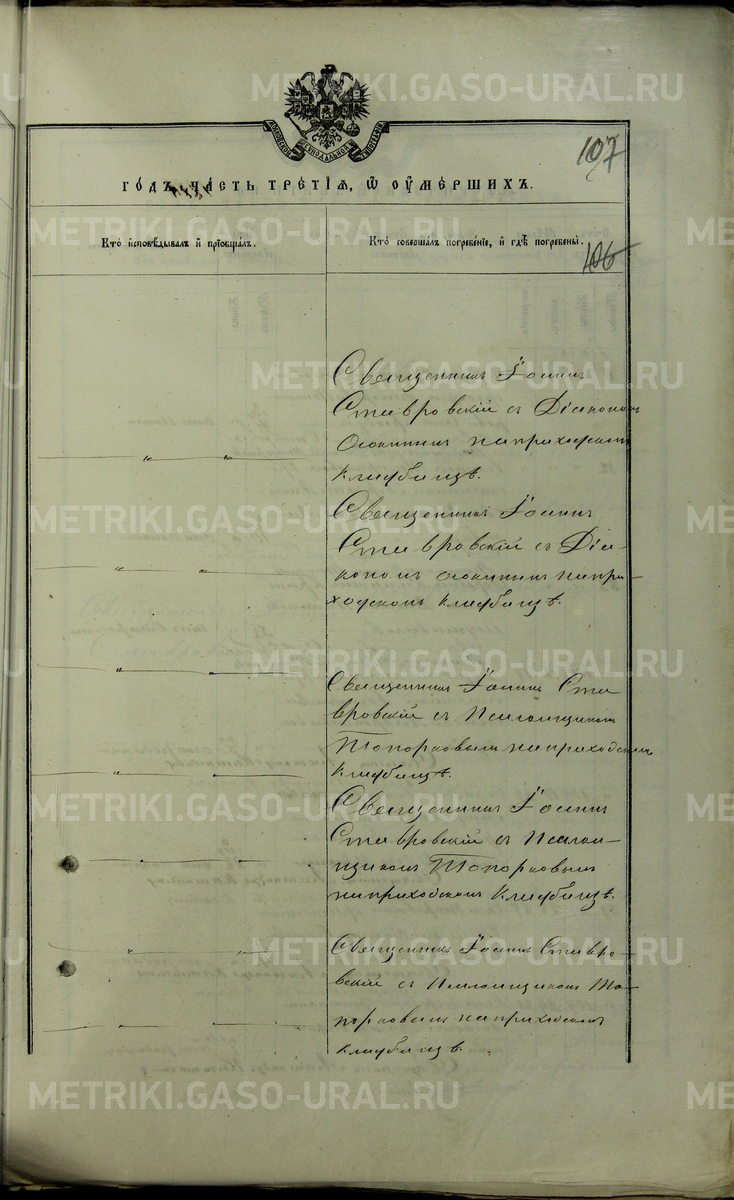 МОСКОВСКОЙ СѴНОДАЛЬНОЙ ТИПОГРАФІИ
107
ГО́ДЪ ЧА́СТЬ ТРЕ́ТІѦ, Ѡ ОУ҆МЕ́РШИХЪ.
Кто̀ и҆сповѣ́дывалъ и҆ прїѡбща́лъ.
Кто̀ соверша́лъ погребе́нїе, и҆ гдѣ̀ погребены̀.
106
Священникъ Іоаннъ
Ставровскій съ Діакономъ
Осокинымъ на приходскомъ
кладбищѣ.
Священникъ Іоаннъ
Ставровскій съ Діа-
кономъ Осокинымъ на при-
ходскомъ кладбищѣ.
Священникъ Іоаннъ Ста
вровскій съ Псаломщикомъ
Топорковымъ на приходскомъ
кладбищѣ.
Священникъ Іоаннъ
Ставровскій съ Псалом-
щикомъ Топорковымъ
на приходскомъ кладбищѣ.
Священникъ Іоаннъ Ставро-
вскій съ Псаломщикомъ То-
порковымъ на приходскомъ
кладбищѣ.
METRIKI.GASO-URAL.RU